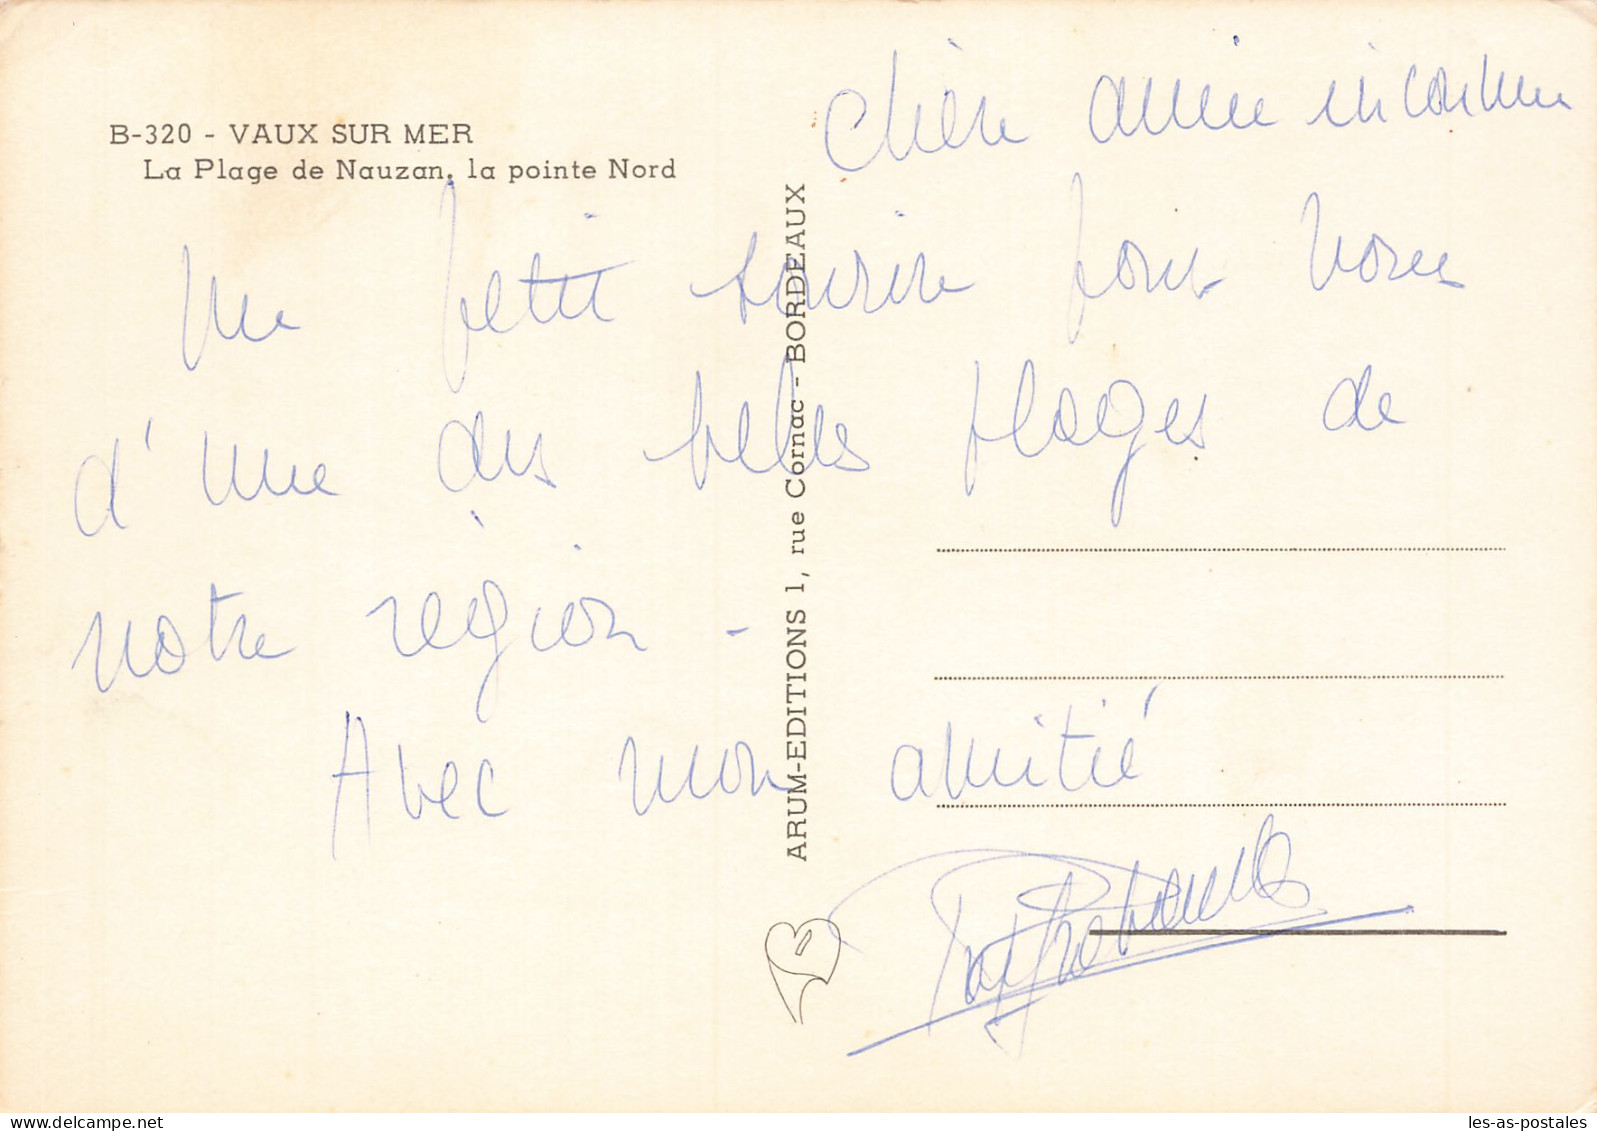 B-320 - VAUX SUR MER
La Plage de Nauzan, la pointe Nord
ARUM-EDITIONS 1, rue Cornac - BORDEAUX
Chère amie inconnue
Un petit sourire pour vous
d'une des belles plages de
notre région -
Avec mon amitié
delcampe.net
les-as-postales